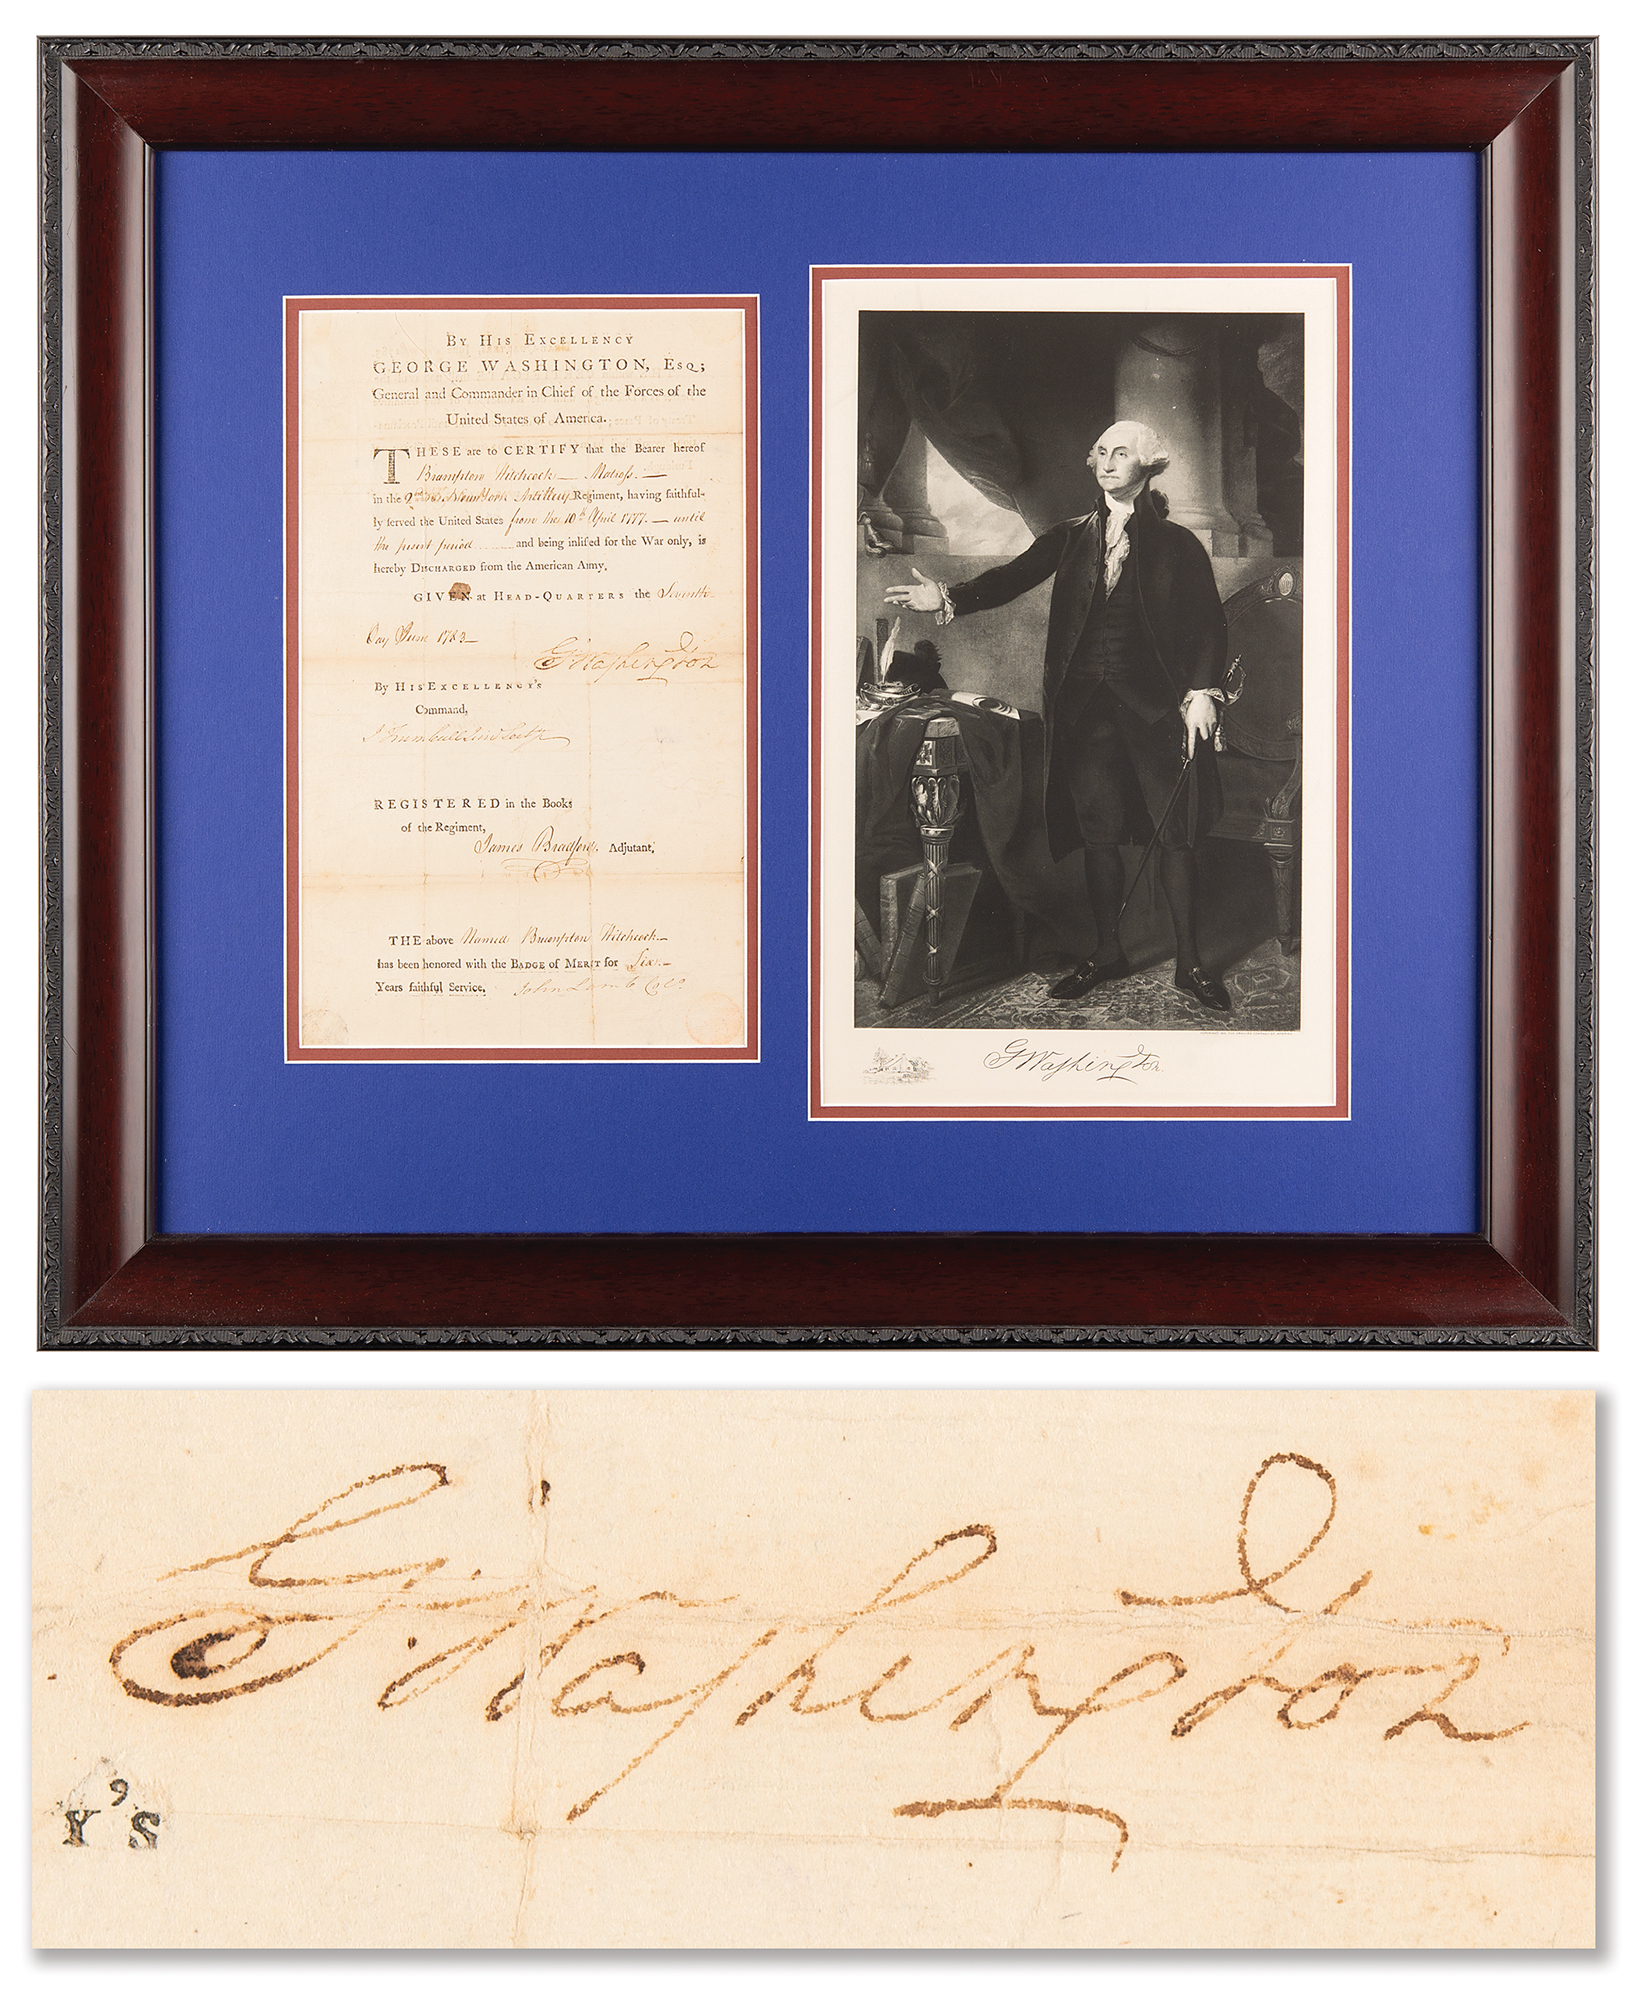 By His Excellency
GEORGE WASHINGTON, Esq;
General and Commander in Chief of the Forces of the
United States of America.
THESE are to CERTIFY that the Bearer hereof
Brampton Hitchcock — Matross. —
in the 2nd New York Artillery Regiment, having faithful-
ly served the United States from the 10th April 1777. — until
the present period and being inlisted for the War only, is
hereby Discharged from the American Army.
GIVEN at Head-Quarters the Seventh
Day June 1783 —
G:Washington
By His Excellency's
Command,
J Trumbull Jun Secty
REGISTERED in the Books
of the Regiment,
James Bradford. Adjutant.
THE above Named Brampton Hitchcock —
has been honored with the Badge of Merit for Six —
Years faithful Service. John Lamb Colo
GWashington
G:Washington
Y's